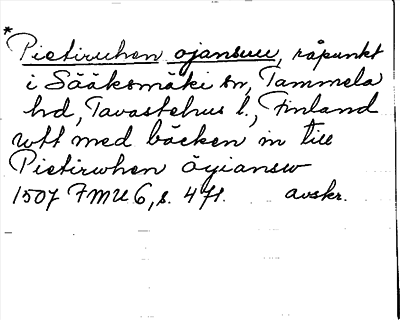 * Pietiruhen ojansuu, råpunkt
i Sääksmäki sn, Tammela
hd, Tavastehus l., Finland
utt med bäcken in till
Pietirwhen öyiansw
1507 FMU 6, s. 471. avskr.